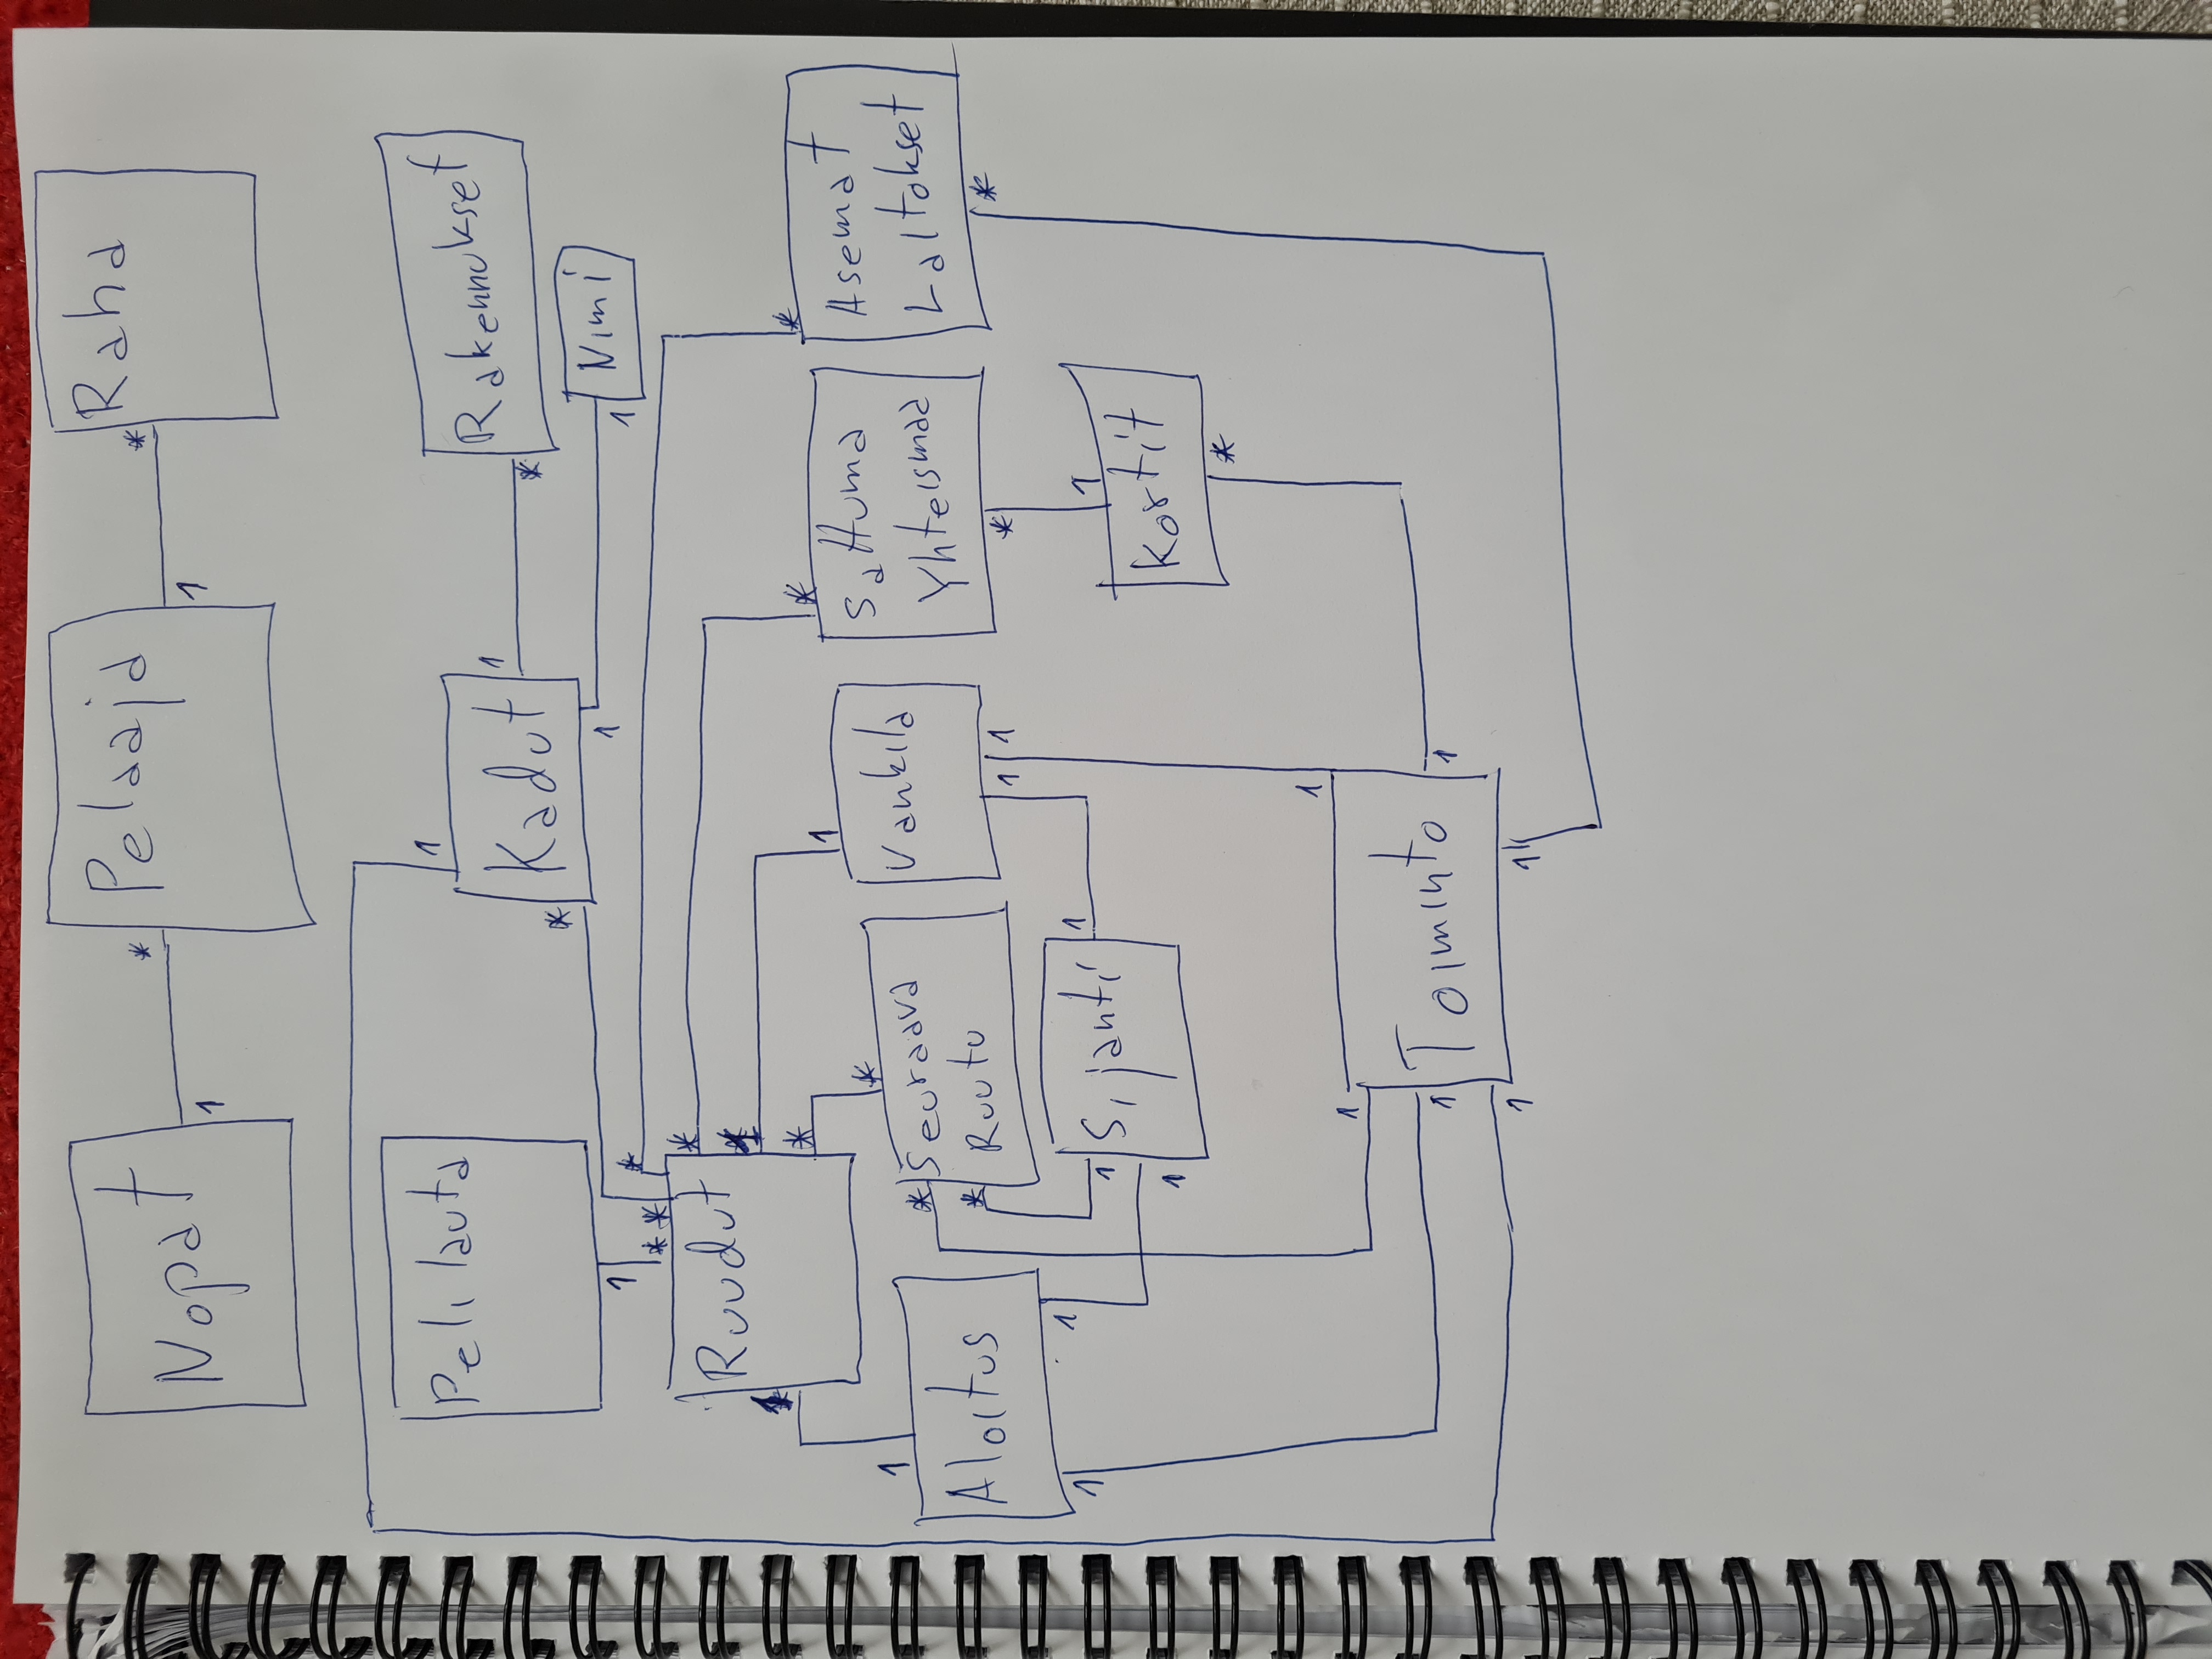 Nopat
1
*
Pelaaja
1
*
Raha
Pelilauta
1
*
1
Kadut
*
1
*
Rakennukset
1
1
Nimi
*
*
Ruudut
*
*
*
*
1
1
*
1
Aloitus
1
1
*
*
Seuraava
Ruutu
Vankila
1
1
Sattuma
Yhteismaa
*
Asemat
Laitokset
*
1
Sijanti
1
1
1
Kortit
*
1
1
Toiminto
1
1
1
1